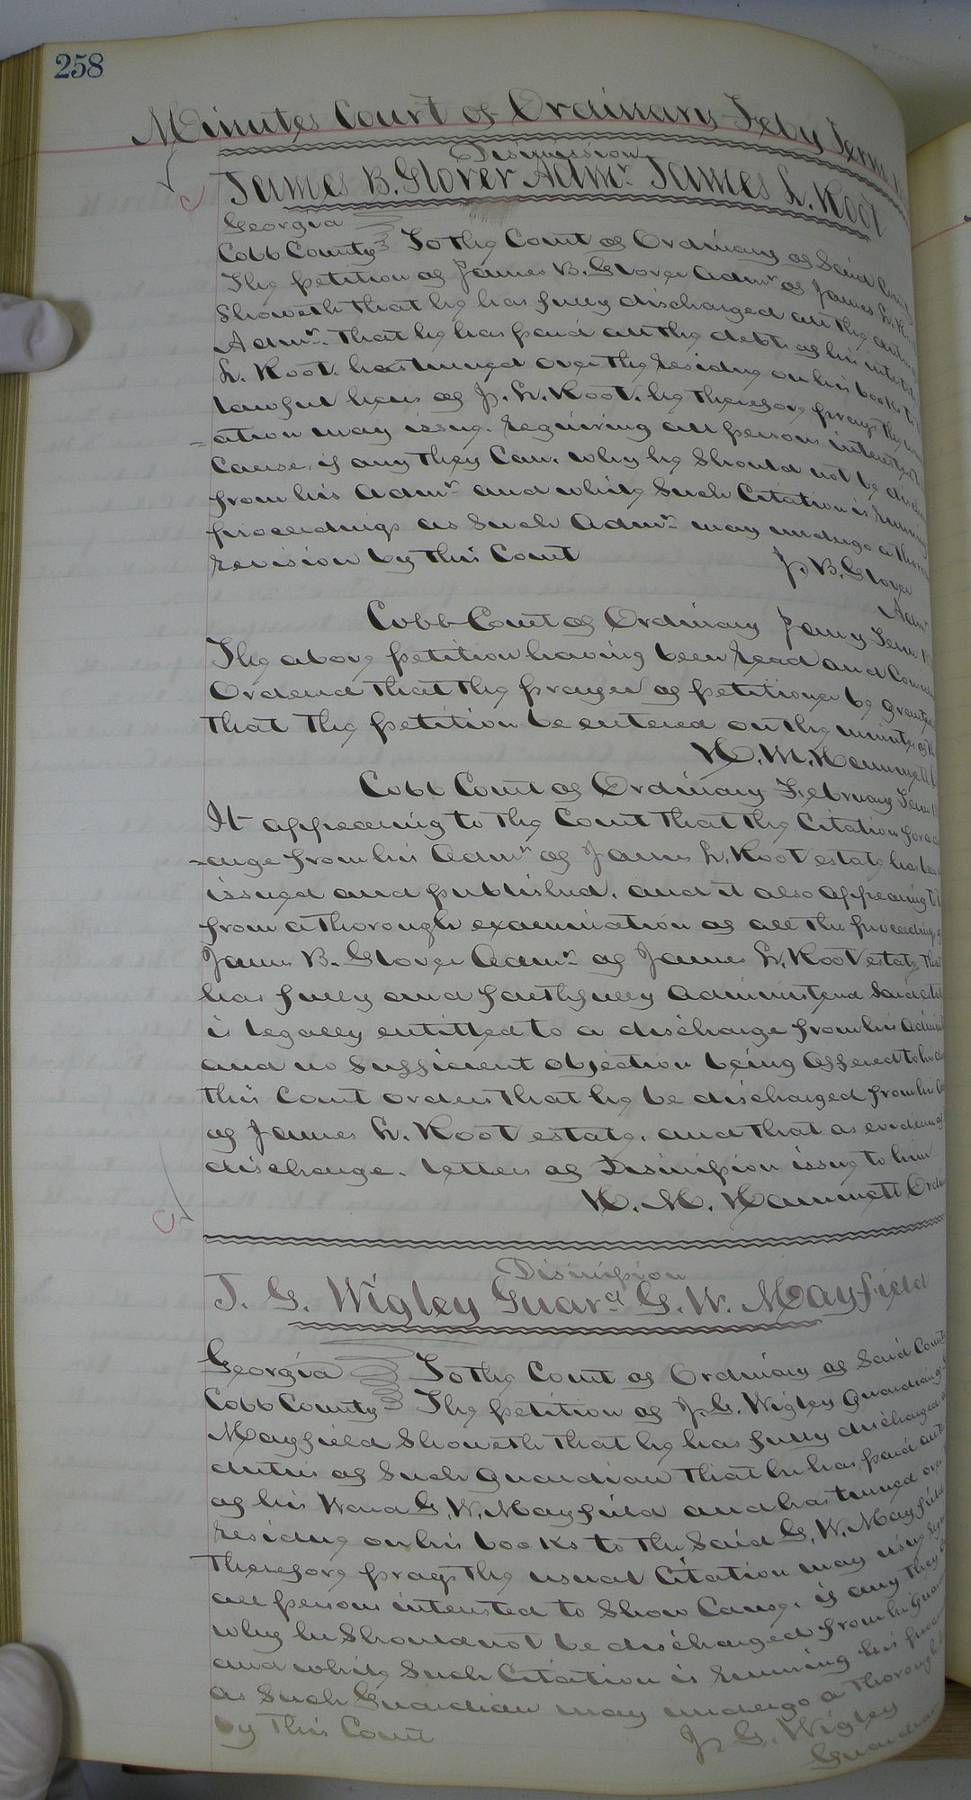 258
Minutes Court of Ordinary Feby Term
Dismission
James B. Glover Admr. James L. Root
Georgia
Cobb County To the Court of Ordinary of Said
The petition of James B. Glover Admr of James L. R
Showeth that he has fully discharged all the duties
Admr. that he has paid all the debts of his intestate
L. Root. has turned over the residue on his books to
lawful heirs of J. L. Root. he therefore prays the
-ation may issue. requiring all persons interested
Cause, if any they can. why he should not be
from his Admr and while such Citation is running
proceedings as such Admr may undergo a
revision by this Court
J. B. Glover
Admr
Cobb Court of Ordinary Jany Term
The above petition having been read and
Ordered that the prayer of petitioner be granted
that the petition be entered on the minutes of
H. M. Hammett
Cobb Court of Ordinary February Term
It appearing to the Court that the Citation for
-arge from his Admr of James L. Root estate has
issued and published, and it also appearing
from a thorough examination of all the proceedings
James B. Glover Admr of James L. Root estate
has fully and faithfully administered Said
is legally entitled to a discharge from his
and no sufficient objection being offered to his
this Court orders that he be discharged from his
of James L. Root estate, and that as evidence
discharge. letters of Dismission issue to him
H. M. Hammett
Dismission
J. G. Wigley Guard G. W. Mayfield
Georgia To the Court of Ordinary of Said County
Cobb County The petition of J G. Wigley Guardian
Mayfield Showeth that he has fully discharged
duties of such guardian that he has paid
of his Ward G. W. Mayfield and has turned over
residue on his books to the said G. W. Mayfield
therefore prays the usual Citation may issue
all persons interested to Show Cause, if any they
why he should not be discharged from his
and while such Citation is running his
as such Guardian may undergo a thorough
by this Court
J. G. Wigley
Guardian